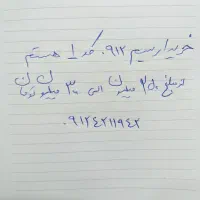 خریدار سیم ۰۹۱۲ کد ۱ هستم
مبلغ ۲ میلیون الی ۳۰ میلیون تومان
۰۹۱۲۴۲۱۱۹۴۲